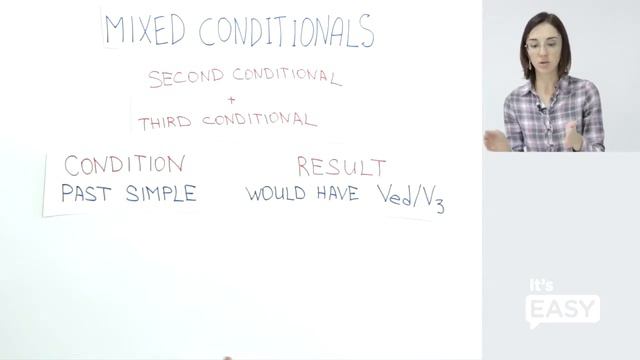 MIXED CONDITIONALS
SECOND CONDITIONAL
+
THIRD CONDITIONAL
CONDITION RESULT
PAST SIMPLE WOULD HAVE Ved/V3
It's
EASY